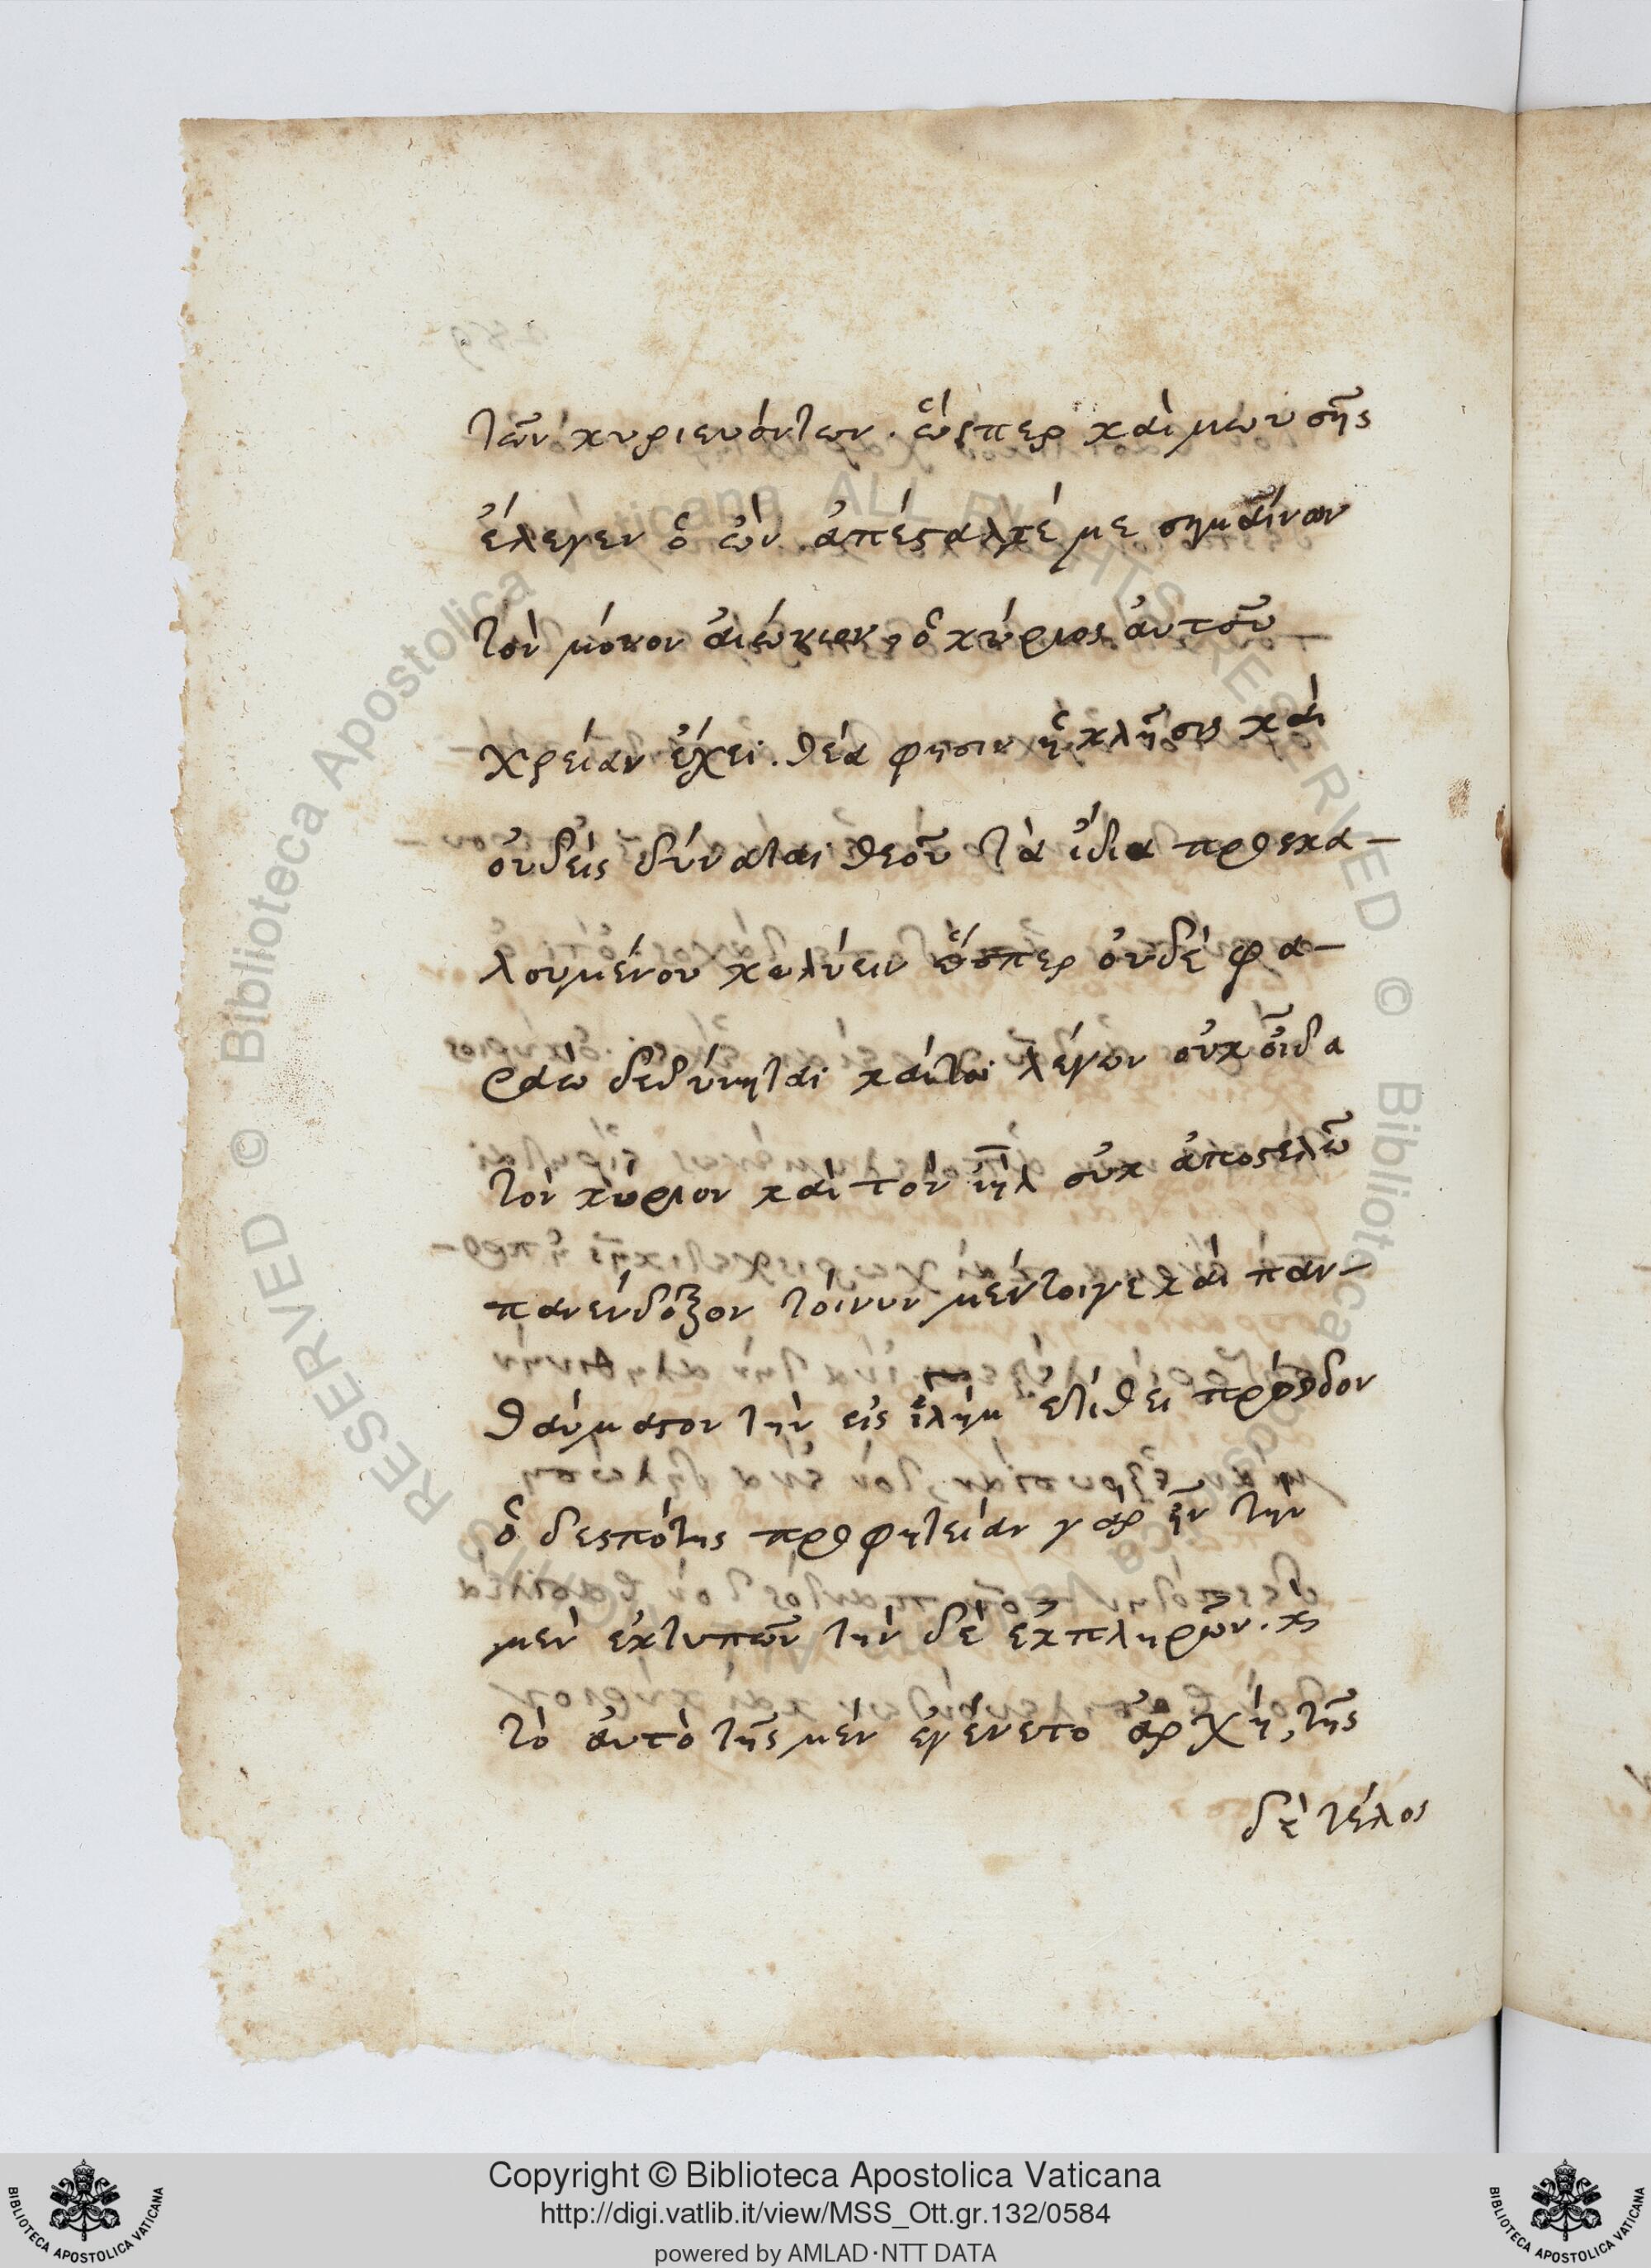 τῶν κυριευόντων. ὥσπερ καὶ μωυσῆς
ἔλεγεν ὁ ὢν ἀπέσταλκέ με σημαίνων
τὸν μόνον αἰώνιον, ὁ κύριος αὐτοῦ
χρείαν ἔχει. θεία φησιν ἡ κλῆσις καὶ
οὐδεὶς δύναται θεοῦ τὰ ἴδια προσκα-
λουμένου κωλύειν ὥσπερ οὐδὲ φα-
ραὼ δεδύνηται καίτοι λέγων οὐκ οἶδα
τὸν κύριον καὶ τὸν ιηλ οὐκ ἀποστελῶ
πανένδοξον τοίνυν μέντοιγε καὶ παν-
θαύμαστον τὴν εἰς ιλημ ἐτίθει πρόοδον
ὁ δεσπότης προφητείαν γὰρ ἦν τὴν
μὲν ἐκτυπῶν τὴν δὲ ἐκπληρῶν. κς
τὸ αὐτὸ τῆς μὲν ἐγένετο ἀρχή, τῆς
δὲ τέλος
Copyright © Biblioteca Apostolica Vaticana
http://digi.vatlib.it/view/MSS_Ott.gr.132/0584
powered by AMLAD·NTT DATA
BIBLIOTECA APOSTOLICA VATICANA
BIBLIOTECA APOSTOLICA VATICANA